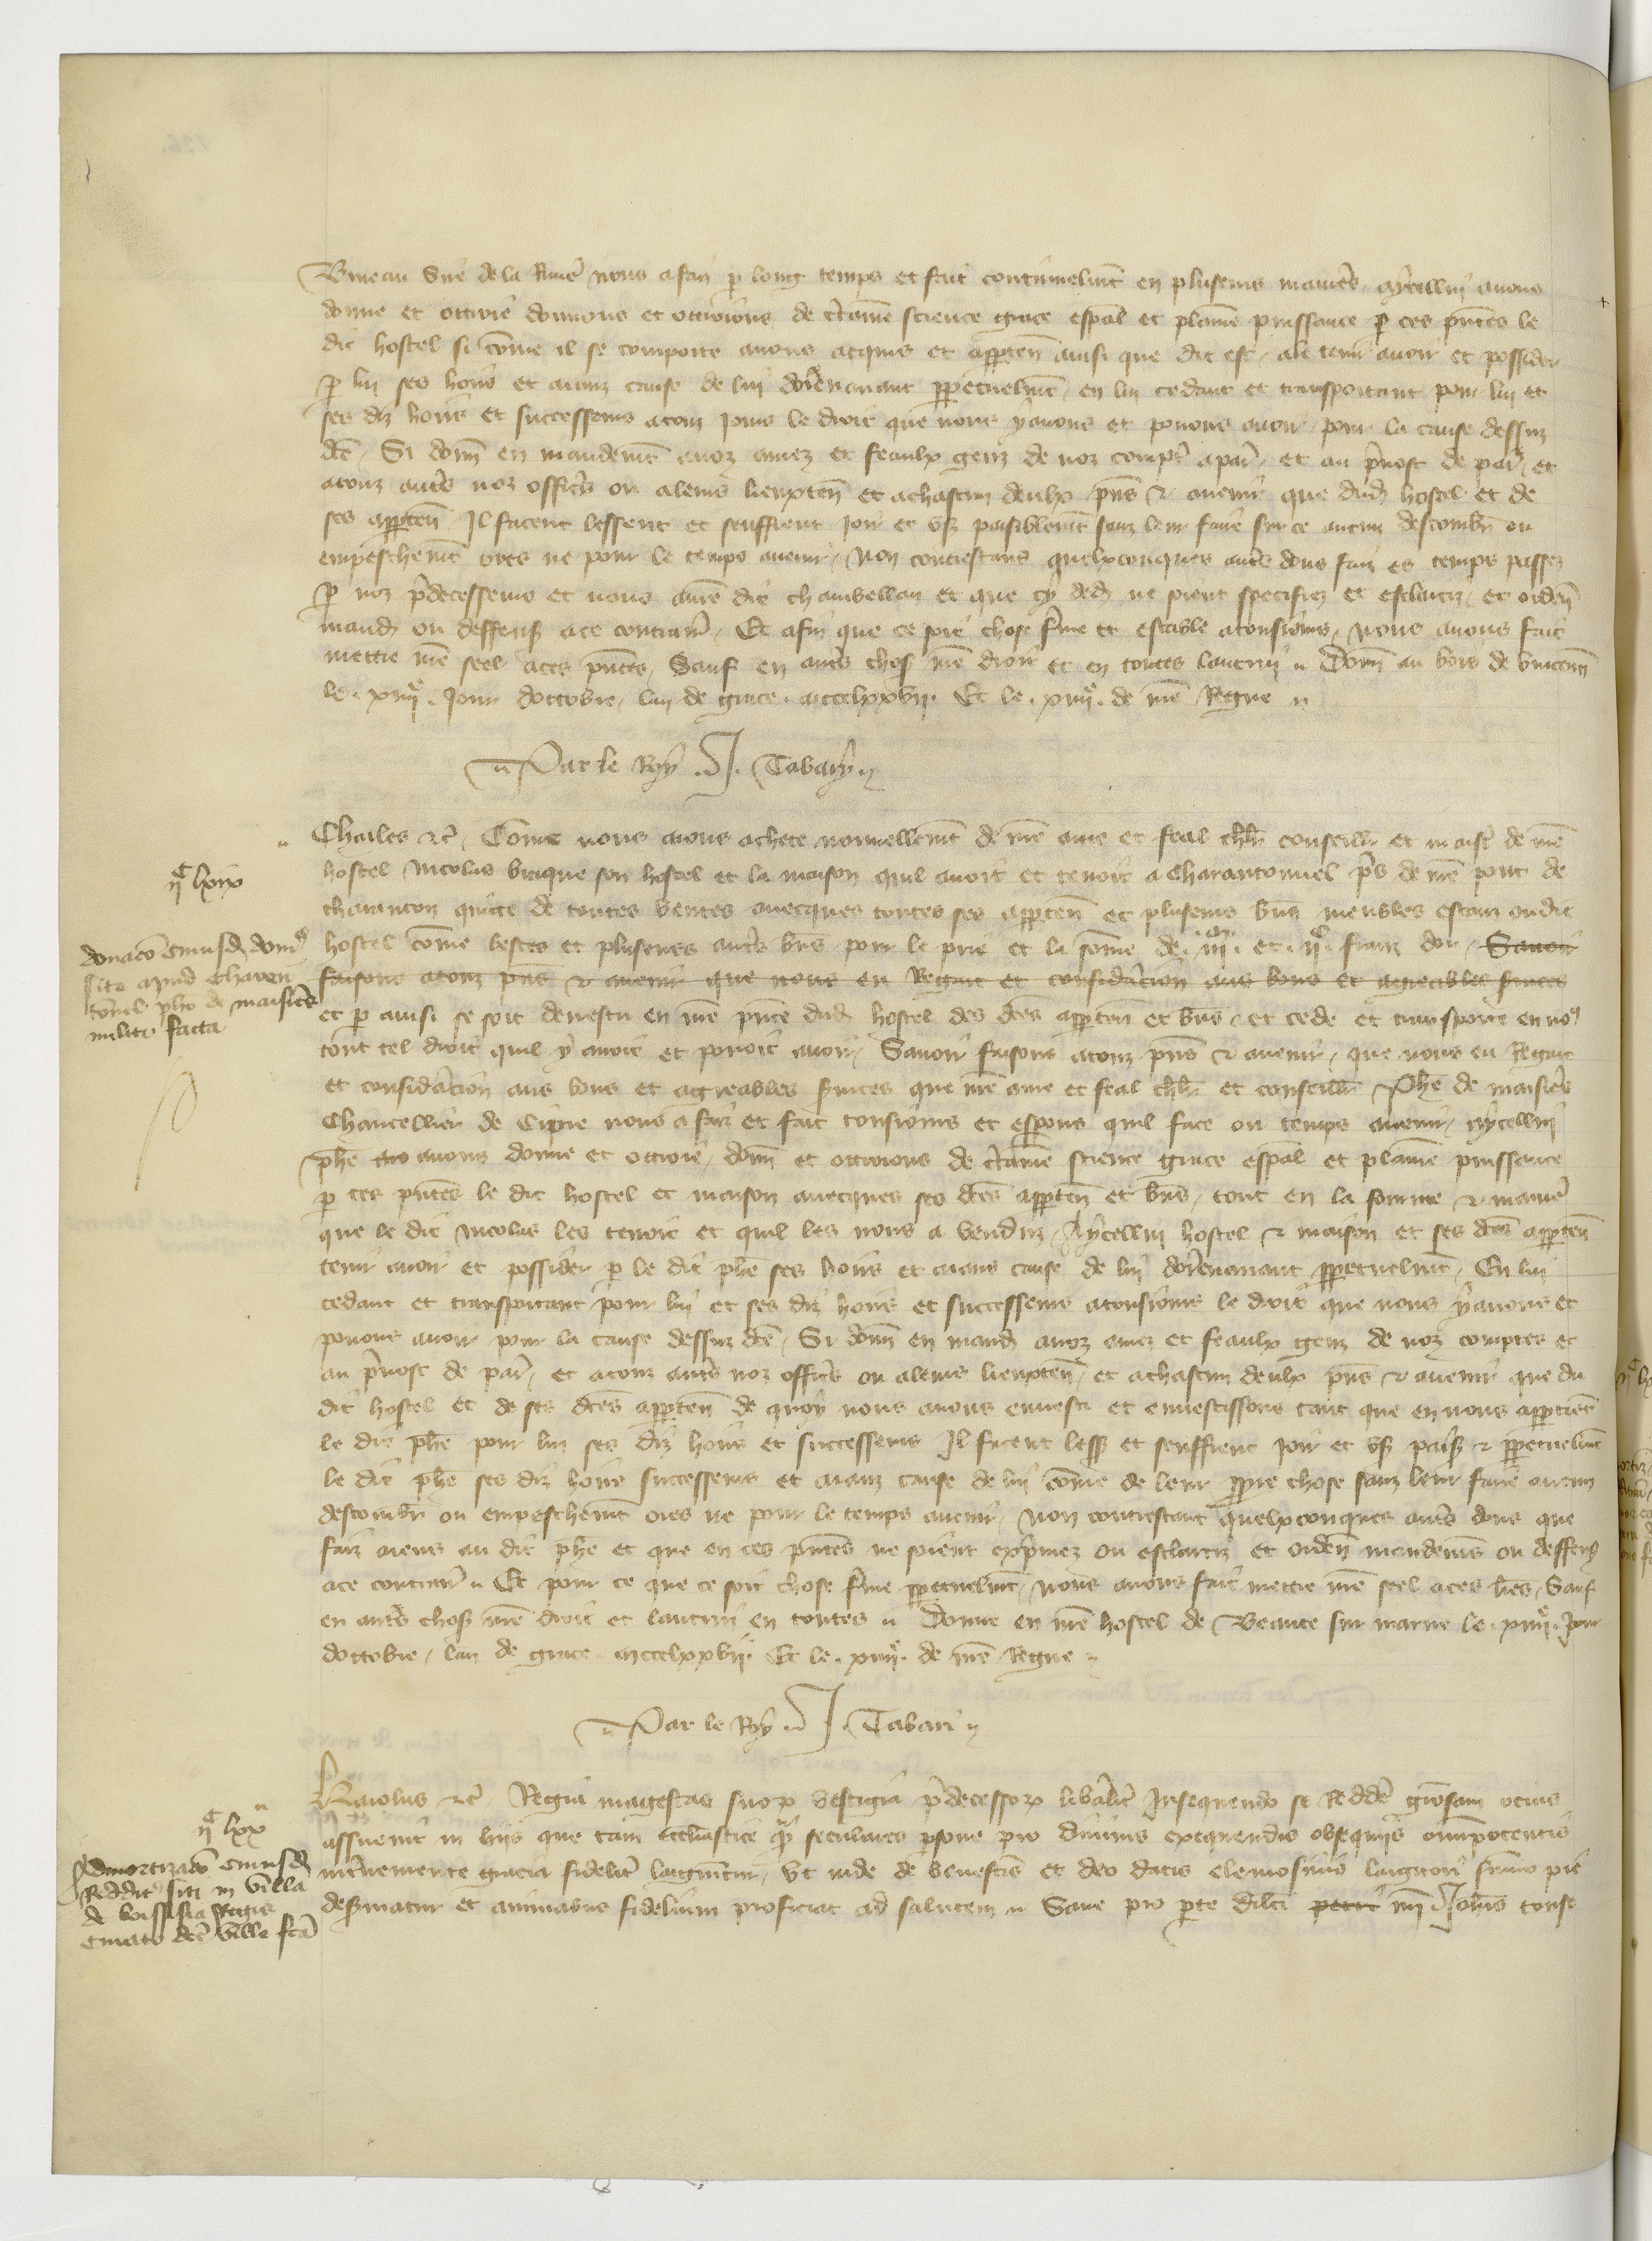 Bureau Sire de la Riuier nous a faiz p long temps et fait continuelmt en pluseurs manieres aycelluy auons
donne et ottroie donnons et ottroions de ctaine science grace espal et plaine puissance p ces pntes le
dit hostel si come il se comporte auons acquis et apptenn ainsi que dit est, a le tenir auoir et possider
p lui ses hoirs et aianz cause de lui dorenauant ppetuelmt, en lui cedant et transportant pour lui et
ses diz hoirs et successeurs atouz Jours le droit que nous y auons et pouons auoir pour la cause dessuz
dce, Si donn en mandemt a noz amez et feaulx genz de noz compt a par et au puost de par et
atouz autres noz officrs ou aleurs lieuxten et achascun deulx pns & auenir que dud hostel et de
ses apptenn Il facent lessent et seuffrent Joir et vs paisiblemt sanz leur faire sur ce aucun descombr ou
empeschemt ores ne pour le temps auenir, Non contrestans quelxconques autres dons faiz es temps passez
p noz pdecesseurs et nous aure dit chambellan et que cy ded ne soient specifiez et esclarciz, et ordenn
mand ou deffens ace contrair, Et afin que ce soit chose fme et estable atousiours, nous auons fait
mettre nre seel aces pntes, Sauf en autres chos nre droit et en toutes lautruy Donn au bois de vincenn
le xiiije Jour dottobre, lan de grace mccclxxvij Et le xiiije de nre Regne
Par le Roy J. Tabary
Charles &c, Come nous aions achete nouuellemt de nre ame et feal chlr conseillr et maistr de nre
hostel Nicolas braque son hostel et la maison quil auoit et tenoit a Charantonnel pres de nre pont de
charanton quitte de toutes ventes auecques toutes ses apptenn et pluseurs bns meubles estanz oudit
hostel come bestes et pluseurs autres bns pour le pris et la some de iijm et ijc franz dor, Sauoir
faisons atouz pns & auenir que nous en Regart et considacion aus bons et agreables suices
et p ainsi se soit deuestu en nre pnce dud hostel des dces apptenn et bns, et cede et transporte en nous
tout tel droit quil y auoit et pouoit auoir, Sauoir faisons atouz pns & auenir, que nous eu Regart
et considacion aus bons et agreables suices que nre ame et feal chlr et conseillr Phe de maisiers
Chancellier de Cipre nous a faiz et fait tousiours et espons quil face ou temps auenir, aycelluy
phe auons donne et ottroie, donn et ottroions de ctaine science grace espal et plaine puissance
p ces pntes le dit hostel et maison auecques ses dces apptenn et bns, tout en la forme & manier
que le dit Nicolas les tenoit et quil les nous a venduz, Aycelluy hostel & maison et ses dces apptenn
tenir auoir et possider p le dit phe ses hoirs et aians cause de luy dorenauant ppetuelmt, En lui
cedant et transportant pour luy et ses diz hoirs et successeurs atousiours le droit que nous y auons et
pouons auoir pour la cause dessuz dce, Si donn en mand a noz amez et feaulx genz de noz comptes et
au puost de par, et atouz autres noz officrs ou aleurs lieuxten, et achascun deulx pns & auenir que du
dit hostel et de ses dces apptenn de quoy nous auons enuesti et enuestissons tant que en nous apptient
le dit phe pour luy ses diz hoirs et successeurs Il facent less et seuffrent Joir et vs pais & ppetuelmt
le dit phe ses diz hoirs successeurs et aianz cause de luy come de leur ppre chose sanz leur faire aucun
descombr ou empeschemt ores ne pour le temps auenir, Non contrestant quelxconques autres dons que
faiz aiens au dit phe et que en ces pntes ne soient expimez ou esclarciz et ordenn mandemens ou deffens
ace contrair Et pour ce que ce soit chose fme ppetuelmt, nous auons fait mettre nre seel aces lres, Sauf
en autres chos nre droit et lautruy en toutes Donne en nre hostel de Beaute sur marne le xiiije Jour
dottobre, lan de grace mccclxxvij Et le xiiije de nre Regne
Par le Roy J. Tabari
Karolus &c Regia magestas suorum vestigia pdecessorum libalit Insequendo se Redde giosam ocius
assueuit in hijs que tam eccliastice qm seculares psone pro diuinis exequendis obsequijs omipotentis
interuenente gracia fidelit largiuntur, vt inde de benestis et deo datis elemosinis largitori fruo pie
desinatur et animabus fidelium proficiat ad salutem Sane pro pte dilci petri nri Johis
ijc lxix
donaco cuiusd domus
site apud Charen
tonel pho de maisieres
militi facta
ijc lxx
Admortizaco cuiusd
Reddit siti in villa
de boissisia Regis
curato dce ville fca